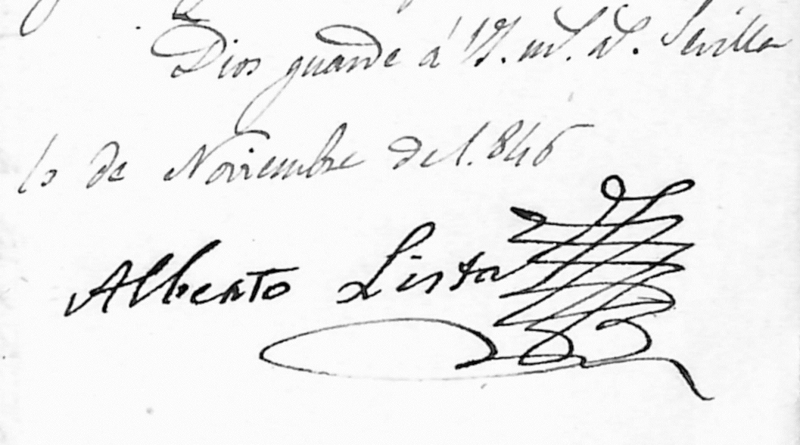 Dios guarde á V. m.s a.s Sevilla
10 de Noviembre de 1.846
Alberto Lista